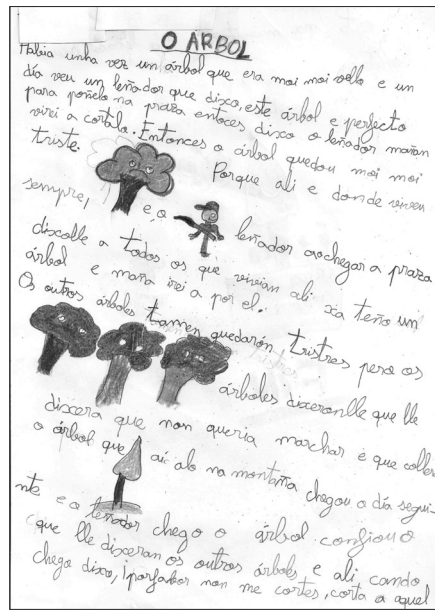 O ARBOL
Habia unha vez un árbol que era moi moi vello e un
día veu un leñador que dixo, este árbol e perfecto
para poñelo na praza entoces dixo o leñador mañan
virei a cortalo. Entonces o árbol quedou moi moi
triste.
Porque ali e donde viveu
sempre,
e o
leñador ao chegar a praza
dixolle a todos os que vivian ali xa teño un
árbol e maña irei a por el.
Os outros árboles tamen quedarón, tristres pero os
árboles dixeronlle que lle
dixera que non queria marchar e que colles
o árbol que
aí alo na montaña chegou o día segui-
nte e o leñador chego o árbol confiou o
que lle dixeran os outros árboles e ali cando
chego dixo, ¡porfabor non me cortes, corta a aquel